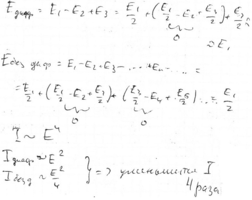 E диф = E₁ - E₂ + E₃ = E₁/2 + (E₁/2 - E₂ + E₃/2) + E₃/2
0
≈ E₁
E без диф = E₁ - E₂ + E₃ - ... + Eₙ - ... =
= E₁/2 + (E₁/2 - E₂ + E₃/2) + (E₃/2 - E₄ + E₅/2) ... = E₁/2
0 0
I ~ E²
I диф ~ E²
I без д ~ E²/4
} => уменьшится I
4 раза